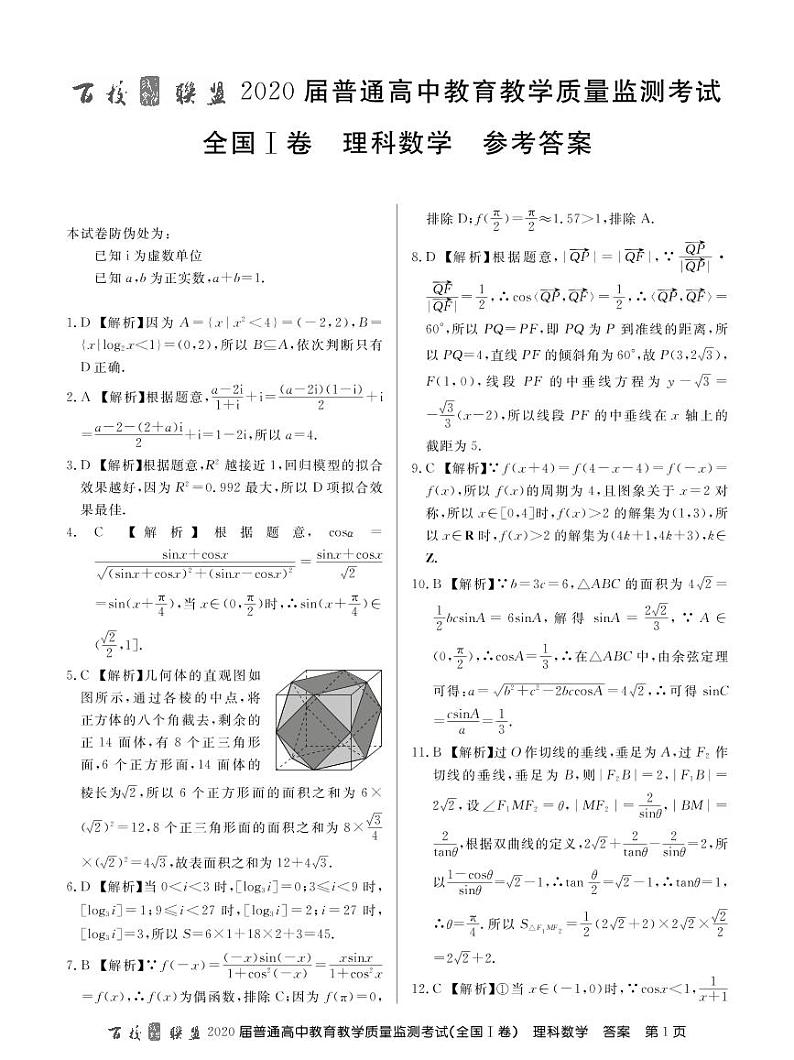 百校联盟 2020 届普通高中教育教学质量监测考试
全国Ⅰ卷 理科数学 参考答案
本试卷防伪处为:
已知 i 为虚数单位
已知 a,b 为正实数,a+b=1.
1. D 【解析】因为 A={x|x²<4}=(-2,2),B=
{x|log₂x<1}=(0,2),所以 B⊆A,依次判断只有
D 正确.
2. A 【解析】根据题意,(a-2i)/(1+i)+i=((a-2i)(1-i))/2+i
=(a-2-(2+a)i)/2+i=1-2i,所以 a=4.
3. D 【解析】根据题意,R² 越接近 1,回归模型的拟合
效果越好,因为 R²=0.992 最大,所以 D 项拟合效
果最佳.
4. C 【解析】根据题意, cosα =
(sinx+cosx)/√((sinx+cosx)²+(sinx-cosx)²)=(sinx+cosx)/√2
=sin(x+π/4),当 x∈(0,π/2)时,∴sin(x+π/4)∈
(√2/2,1].
5. C 【解析】几何体的直观图如
图所示,通过各棱的中点,将
正方体的八个角截去,剩余的
正 14 面体,有 8 个正三角形
面,6 个正方形面,14 面体的
棱长为√2,所以 6 个正方形面的面积之和为 6×
(√2)²=12,8 个正三角形面的面积之和为 8×√3/4
×(√2)²=4√3,故表面积之和为 12+4√3.
6. D 【解析】当 0<i<3 时,[log₃i]=0;3≤i<9 时,
[log₃i]=1;9≤i<27 时,[log₃i]=2;i=27 时,
[log₃i]=3,所以 S=6×1+18×2+3=45.
7. B 【解析】∵f(-x)=((-x)sin(-x))/(1+cos²(-x))=(xsinx)/(1+cos²x)
=f(x),∴f(x)为偶函数,排除 C;因为 f(π)=0,
排除 D;f(π/2)=π/2≈1.57>1,排除 A.
8. D 【解析】根据题意,|QP|=|QF|,∵QP/|QP|·
QF/|QF|=1/2,∴cos⟨QP,QF⟩=1/2,∴⟨QP,QF⟩=
60°,所以 PQ=PF,即 PQ 为 P 到准线的距离,所
以 PQ=4,直线 PF 的倾斜角为 60°,故 P(3,2√3),
F(1,0),线段 PF 的中垂线方程为 y-√3=
-√3/3(x-2),所以线段 PF 的中垂线在 x 轴上的
截距为 5.
9. C 【解析】∵f(x+4)=f(4-x-4)=f(-x)=
f(x),所以 f(x)的周期为 4,且图象关于 x=2 对
称,所以 x∈[0,4]时,f(x)>2 的解集为(1,3),所
以 x∈R 时,f(x)>2 的解集为(4k+1,4k+3),k∈
Z.
10. B 【解析】∵b=3c=6,△ABC 的面积为 4√2=
1/2bcsinA=6sinA,解得 sinA=2√2/3,∵A∈
(0,π/2),∴cosA=1/3,∴在△ABC 中,由余弦定理
可得:a=√(b²+c²-2bccosA)=4√2,∴可得 sinC
=csinA/a=1/3.
11. B 【解析】过 O 作切线的垂线,垂足为 A,过 F₂ 作
切线的垂线,垂足为 B,则|F₂B|=2,|F₁B|=
2√2,设∠F₁MF₂=θ,|MF₂|=2/sinθ,|BM|=
2/tanθ,根据双曲线的定义,2√2+2/tanθ-2/sinθ=2,所
以(1-cosθ)/sinθ=√2-1,∴tan θ/2=√2-1,∴tanθ=1,
∴θ=π/4.所以 S△F₁MF₂=1/2(2√2+2)×2√2×√2/2
=2√2+2.
12. C 【解析】①当 x∈(-1,0)时,∵cosx<1,1/(x+1)
百校联盟 2020 届普通高中教育教学质量监测考试(全国Ⅰ卷) 理科数学 答案 第 1 页